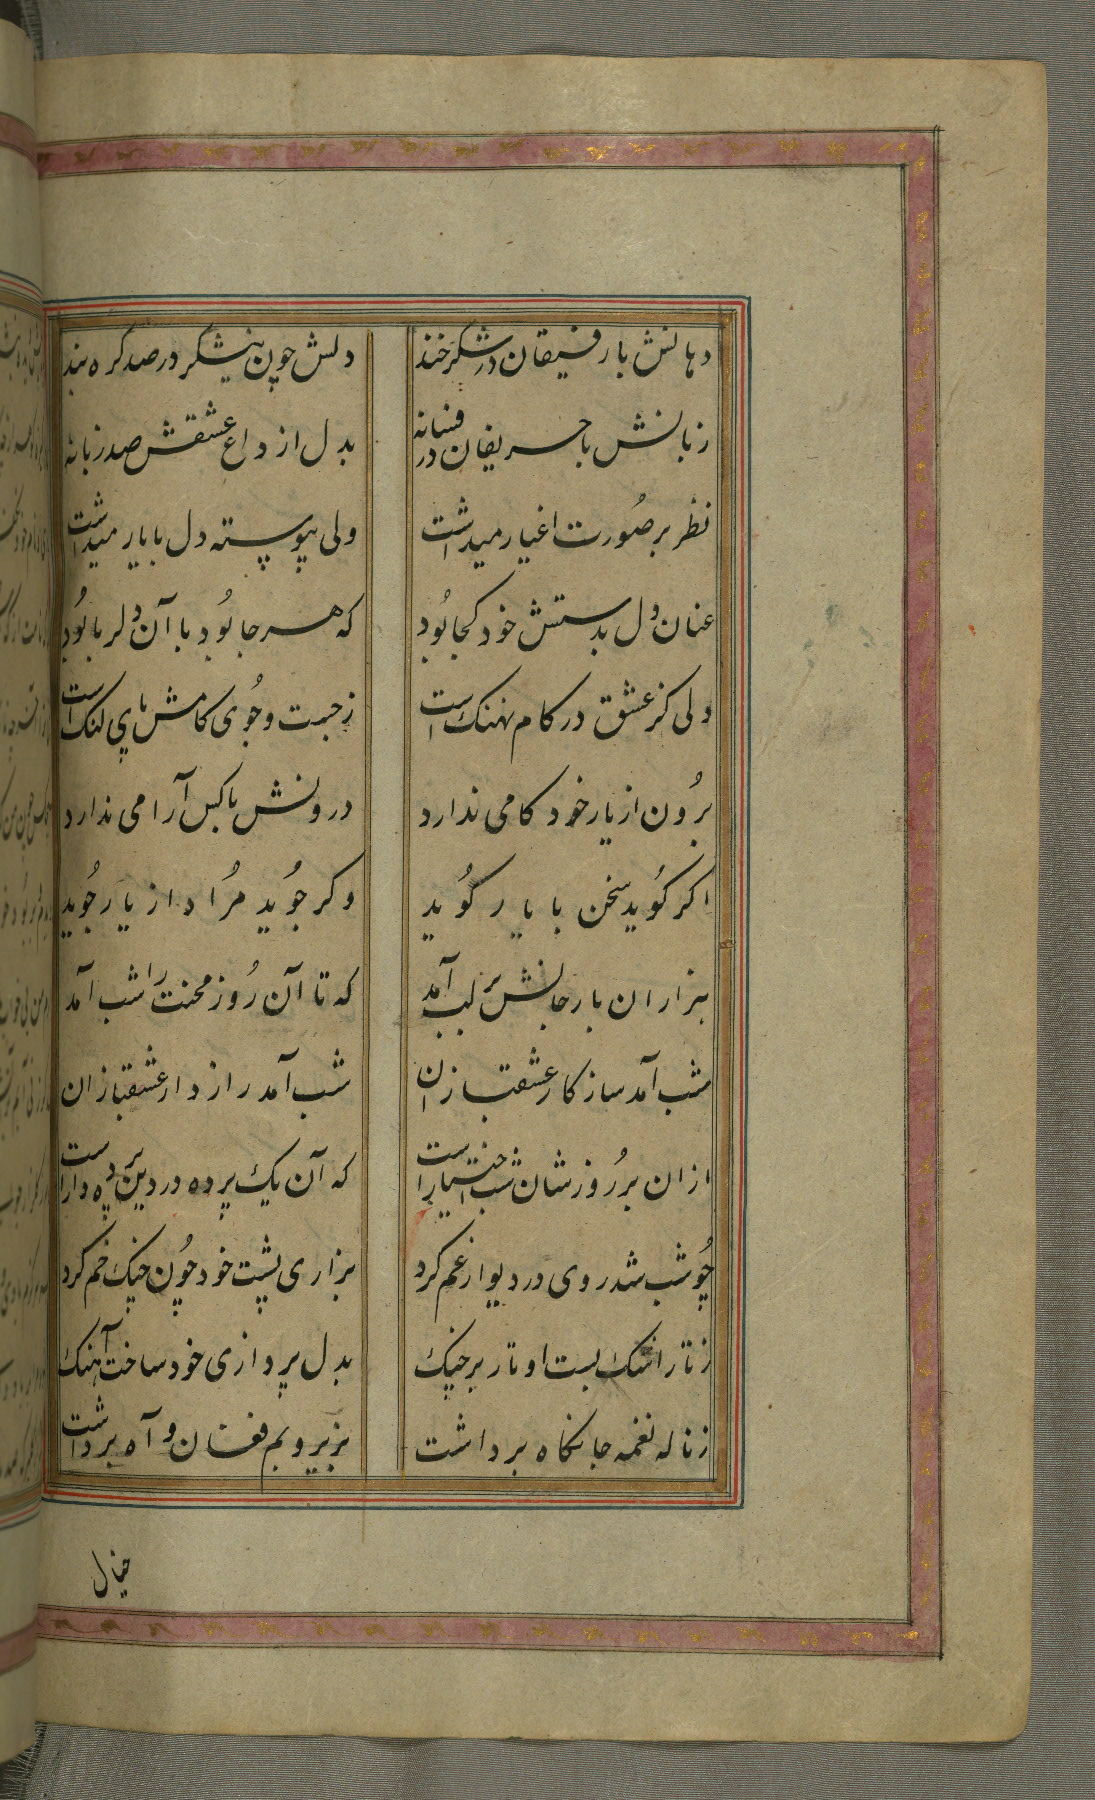 دهانش با رفیقان در شکرخند
دلش چون نیشکر در صد گره بند
زبانش با حریفان در فسانه
بدل از داغ عشقش صد زبانه
نظر بر صورت اغیار میداشت
ولی پیوسته دل با یار میداشت
عنان دل بدستش خود کجا بود
که هر جا بود با آن دلربا بود
دلی کز عشق در کام نهنک است
ز جست و جوی کامش پای لنک است
برون از یار خود کامی ندارد
درونش با کس آرامی ندارد
اکر کوید سخن با یار کوید
وکر جوید مراد از یار جوید
هزاران بار جانش بر لب آمد
که تا آن روز محنت را شب آمد
شب آمد ساز کار عشقبازان
شب آمد رازدار عشقبازان
ازان بر روزشان شب اختیار است
که آن یک پرده در دین پرده دار است
چو شب شد روی در دیوار غم کرد
بزاری پشت خود چون چنک خم کرد
ز تار اشک بست اوتار بر چنک
بدل پردازی خود ساخت آهنک
ز ناله نغمه جانکاه برداشت
بزیر و بم فغان و آه برداشت
خیال